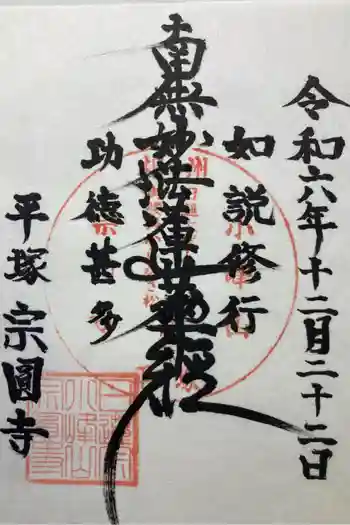 令和六年十二月二十二日
如説修行
南無妙法蓮華経
功徳甚多
平塚 宗圓寺